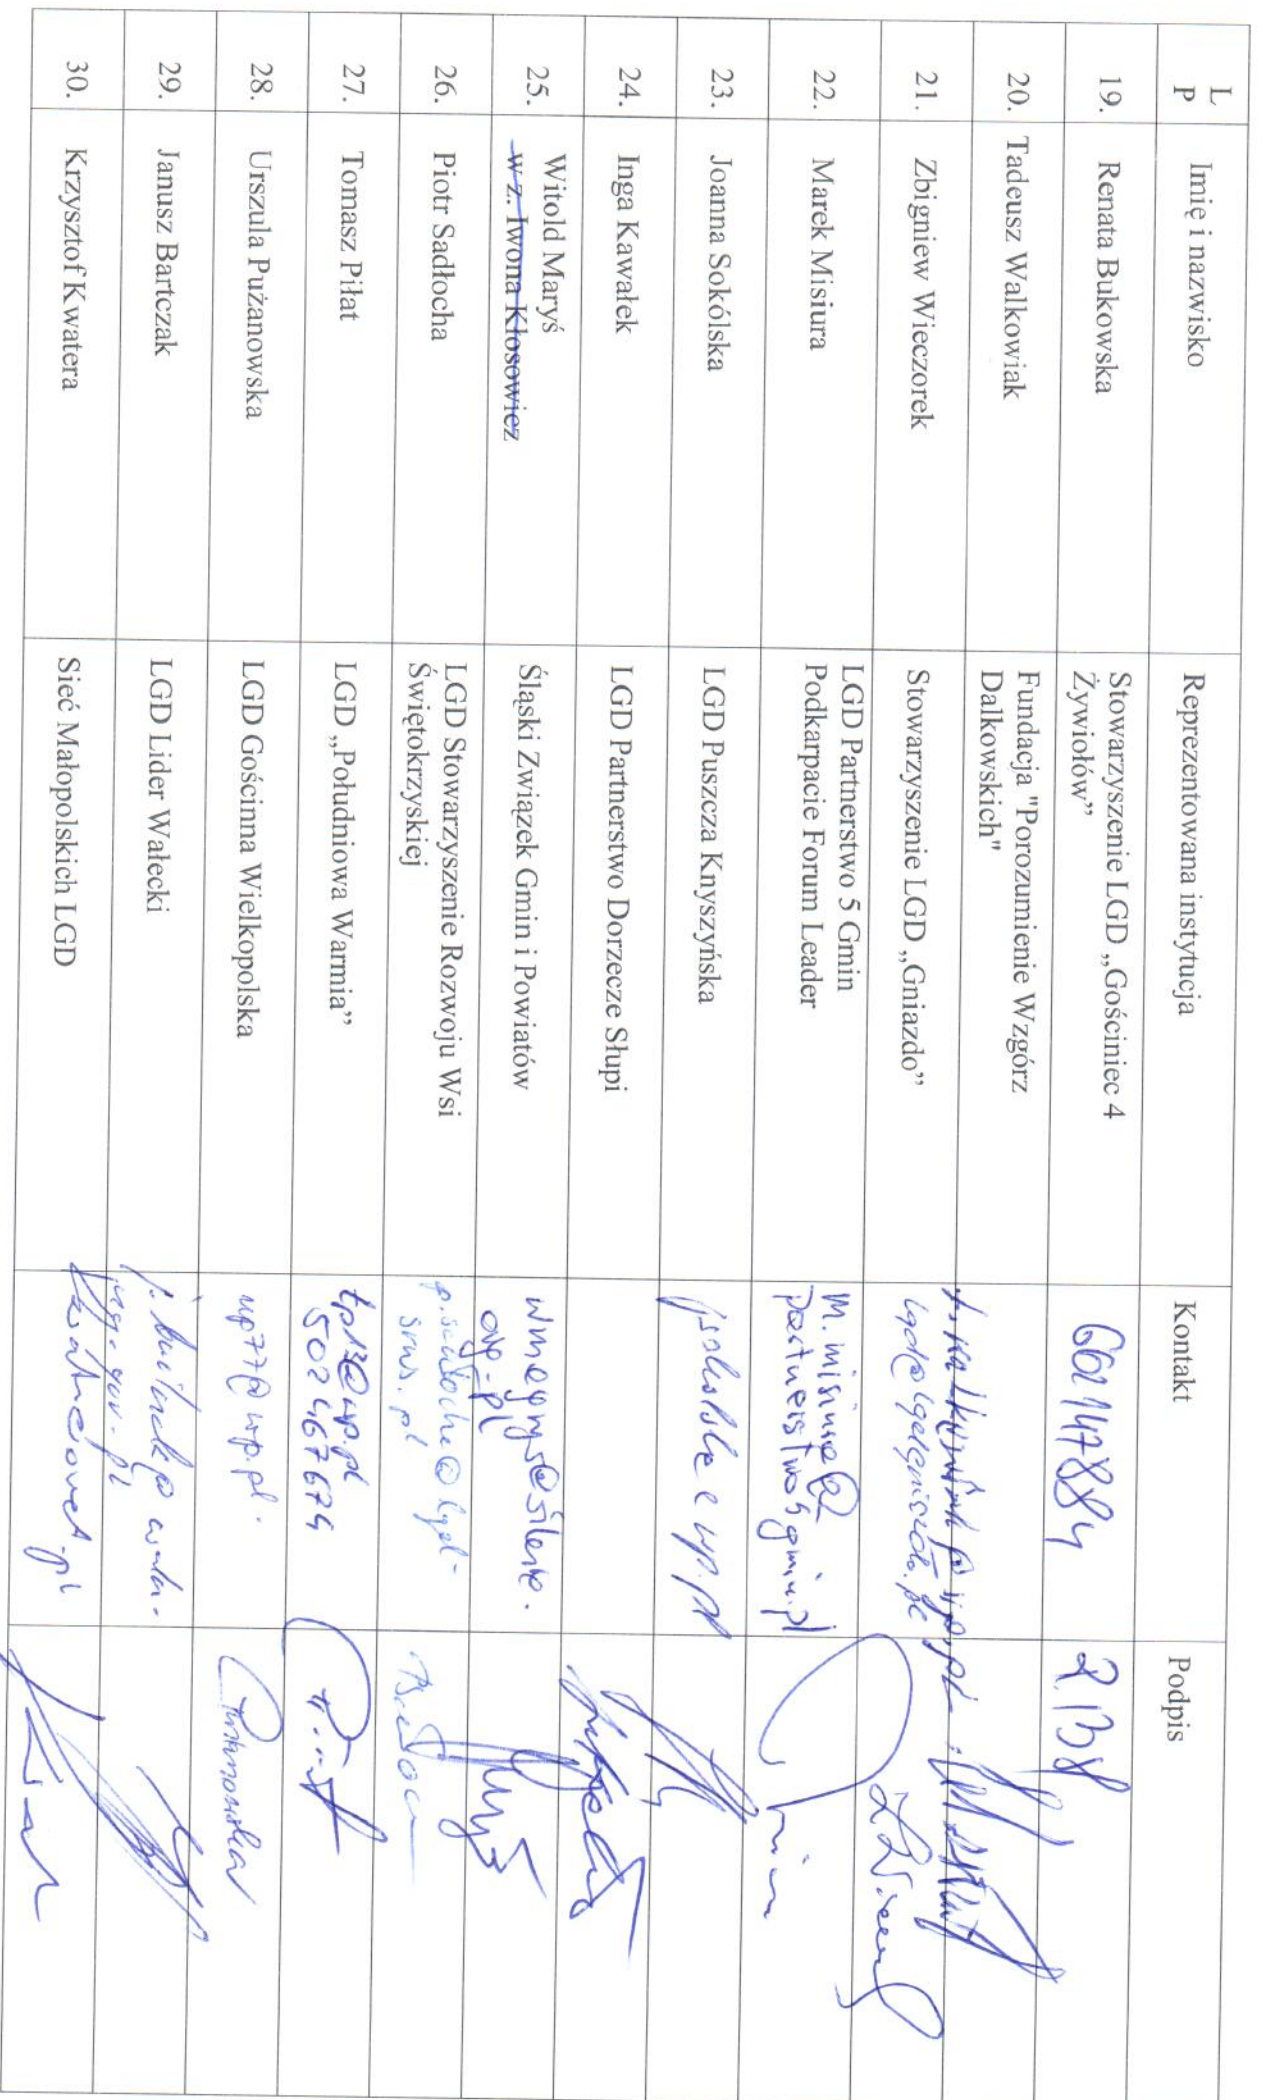 L
P
Imię i nazwisko
Reprezentowana instytucja
Kontakt
Podpis
19.
Renata Bukowska
Stowarzyszenie LGD „Gościniec 4
Żywiołów”
662147884
20.
Tadeusz Walkowiak
Fundacja "Porozumienie Wzgórz
Dalkowskich"
21.
Zbigniew Wieczorek
Stowarzyszenie LGD „Gniazdo”
22.
Marek Misiura
LGD Partnerstwo 5 Gmin
Podkarpacie Forum Leader
m.misiura@
partnerstwo5gmin.pl
23.
Joanna Sokólska
LGD Puszcza Knyszyńska
24.
Inga Kawałek
LGD Partnerstwo Dorzecze Słupi
25.
Witold Maryś
w z. Iwona Kłosowicz
Śląski Związek Gmin i Powiatów
26.
Piotr Sadłocha
LGD Stowarzyszenie Rozwoju Wsi
Świętokrzyskiej
p.sadlocha@lgd-
srws.pl
27.
Tomasz Piłat
LGD „Południowa Warmia”
tp13@wp.pl
502467674
28.
Urszula Pużanowska
LGD Gościnna Wielkopolska
up77@wp.pl.
29.
Janusz Bartczak
LGD Lider Wałecki
30.
Krzysztof Kwatera
Sieć Małopolskich LGD